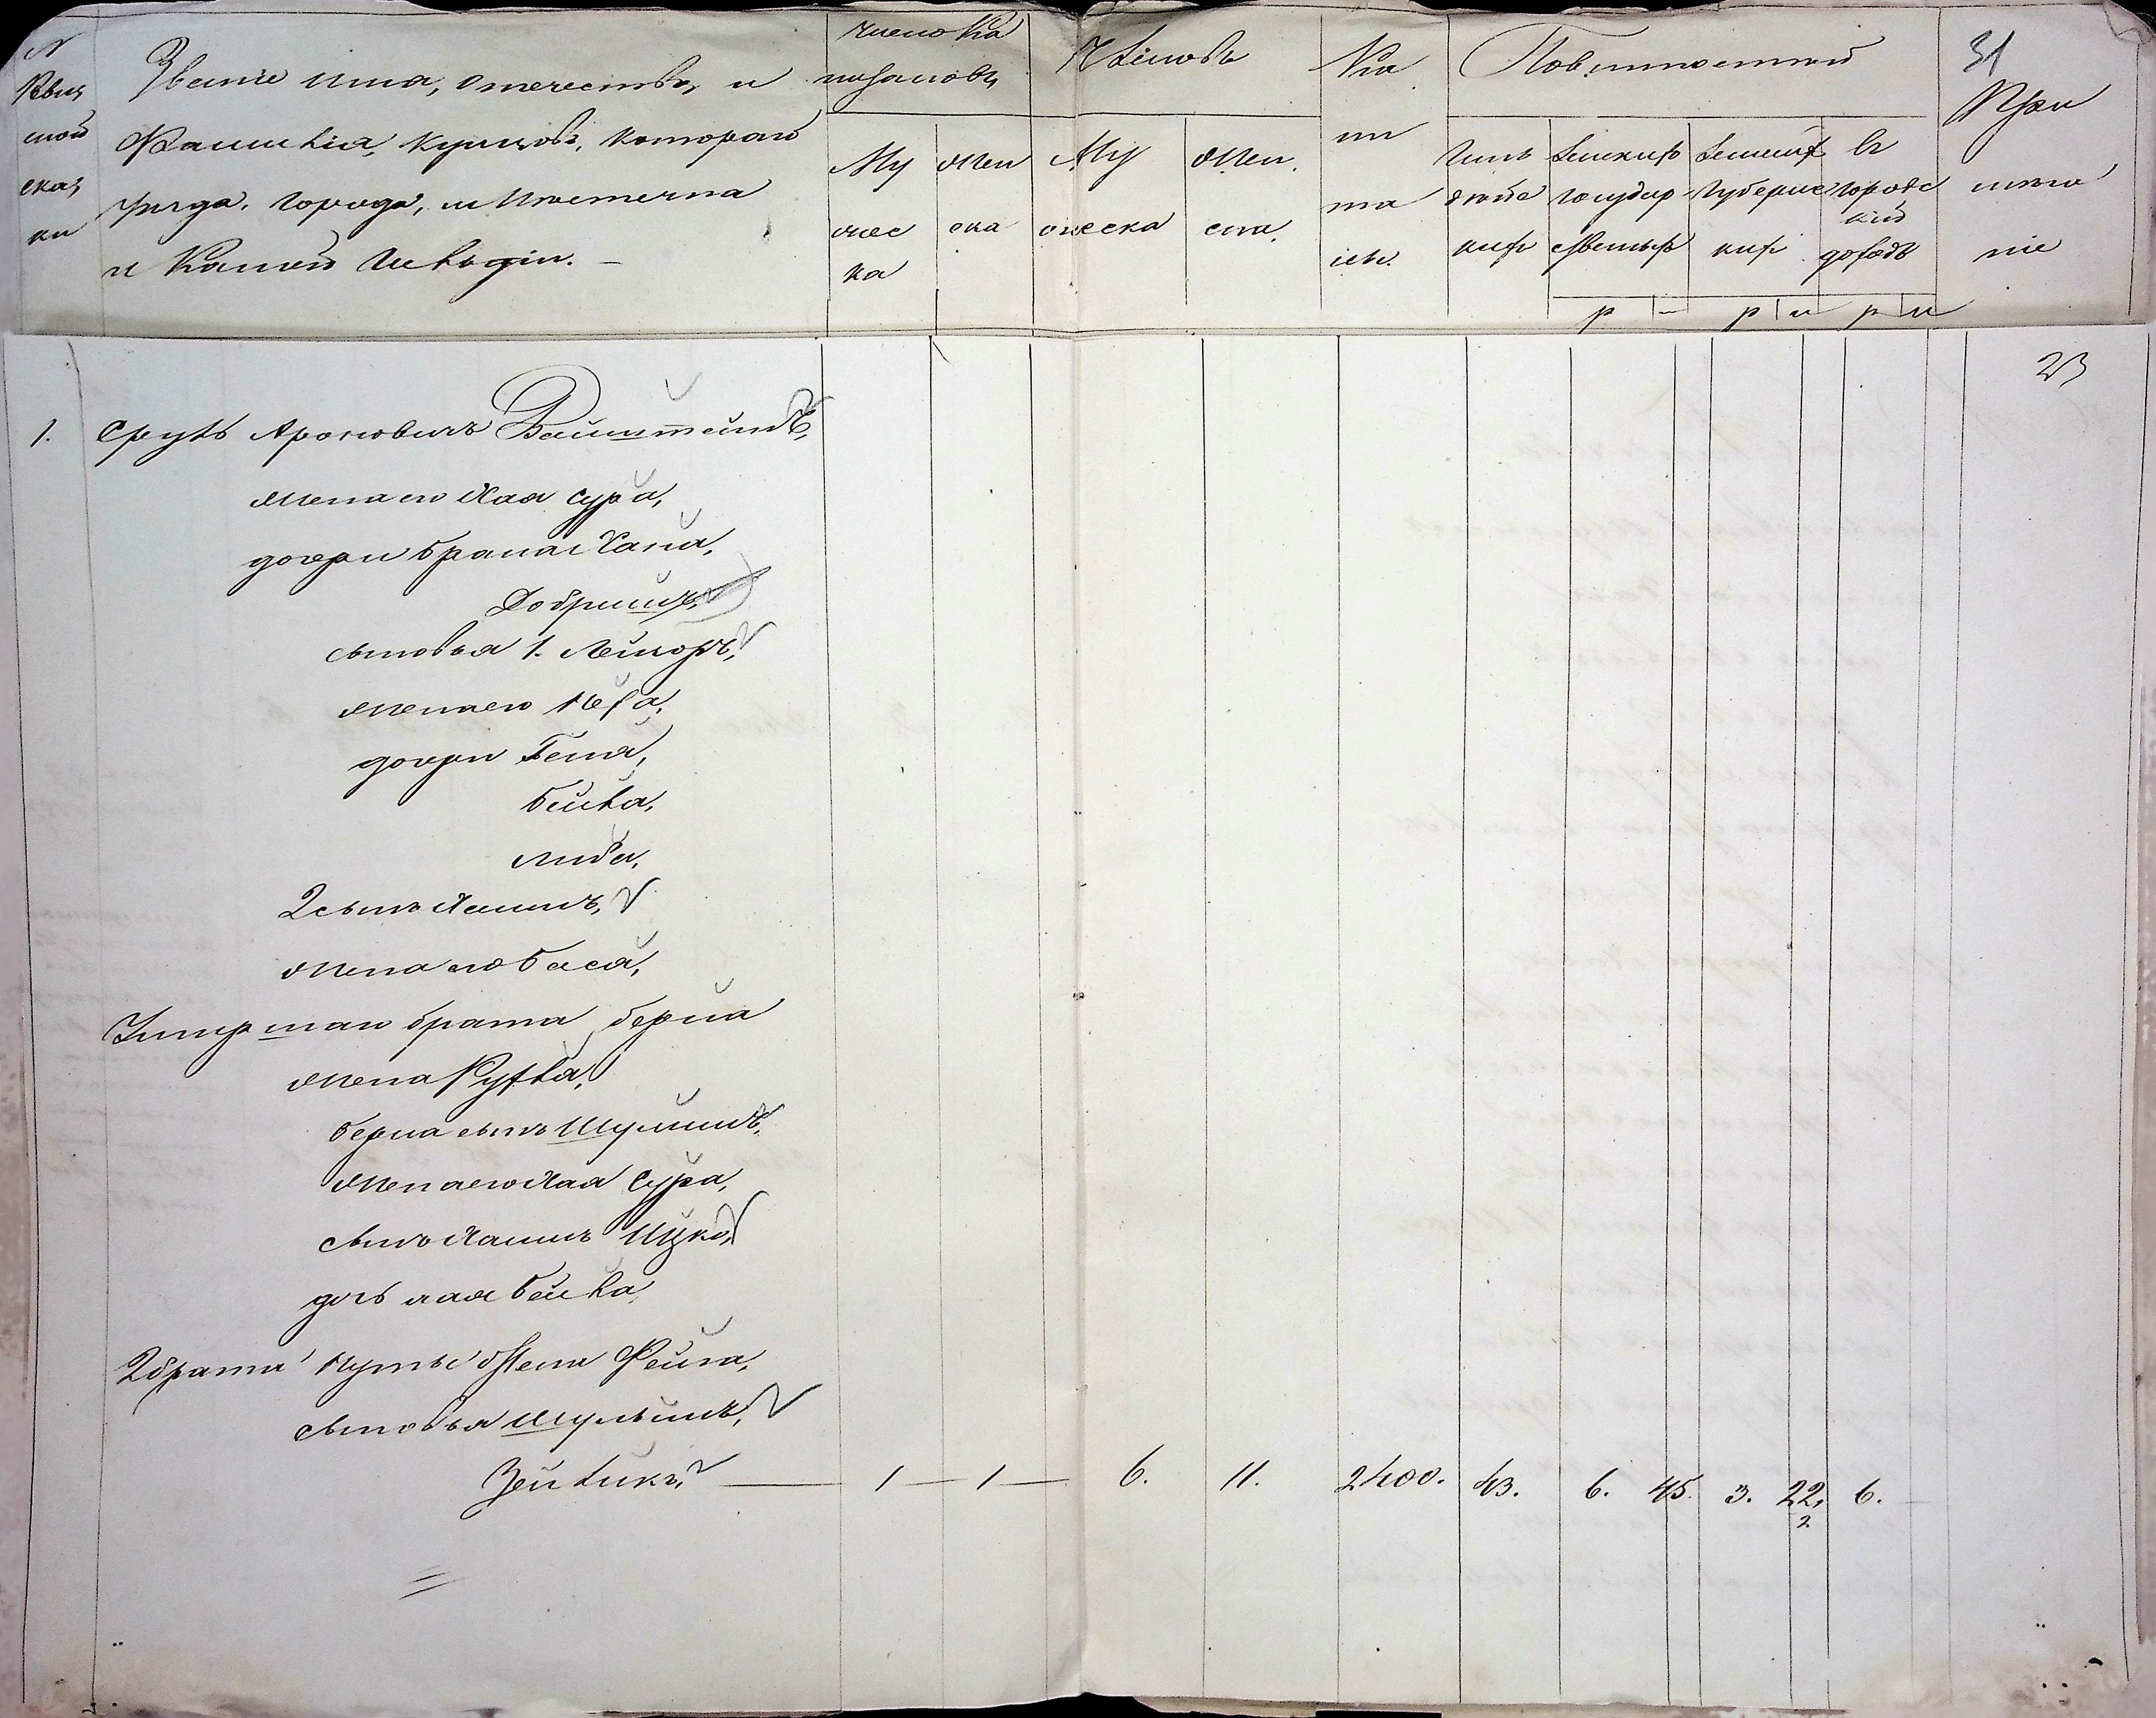 N
Ревиз
ской
сказ
ки
Званіе имя, отечество, и
Фамилія, купцовъ, котораго
уезда. города, и местечка
и Какой Гильдіи. –
число Ка
питаловъ
Му
жес
ка
Жен
ска
Членовъ
Му
жеска
Жен.
ска.
Ка
пи
та
лы.
Повинностей
Гиль
дейс
ких
Земских
Государ
ственых
Земских
Губернс
ких
Въ
городс
кий
доходъ
р –
р к
р к
31
При
меча
ніе
23
1. Сруль Ароновичъ Вайнштейнъ,
жена его Хая Сура,
дочери брана Хана,
Добришъ,
сыновья 1. Лейзоръ,
жена его
дочери Геня,
Бейла,
Либа,
2 сынъ Хаимъ,
жена его Бася,
Умершаго брата берка
жена Рухля,
берка сынъ Шулимъ,
жена его Хая Сура,
сынъ Хаимъ Ицко,
дочь Хая Бейла
2 брата жена Фейга,
сыновья Шулимъ,
Зейликъ, — 1 — 1 — 6. 11. 2400. 43. 6. 45. 3. 22. 6.
2.